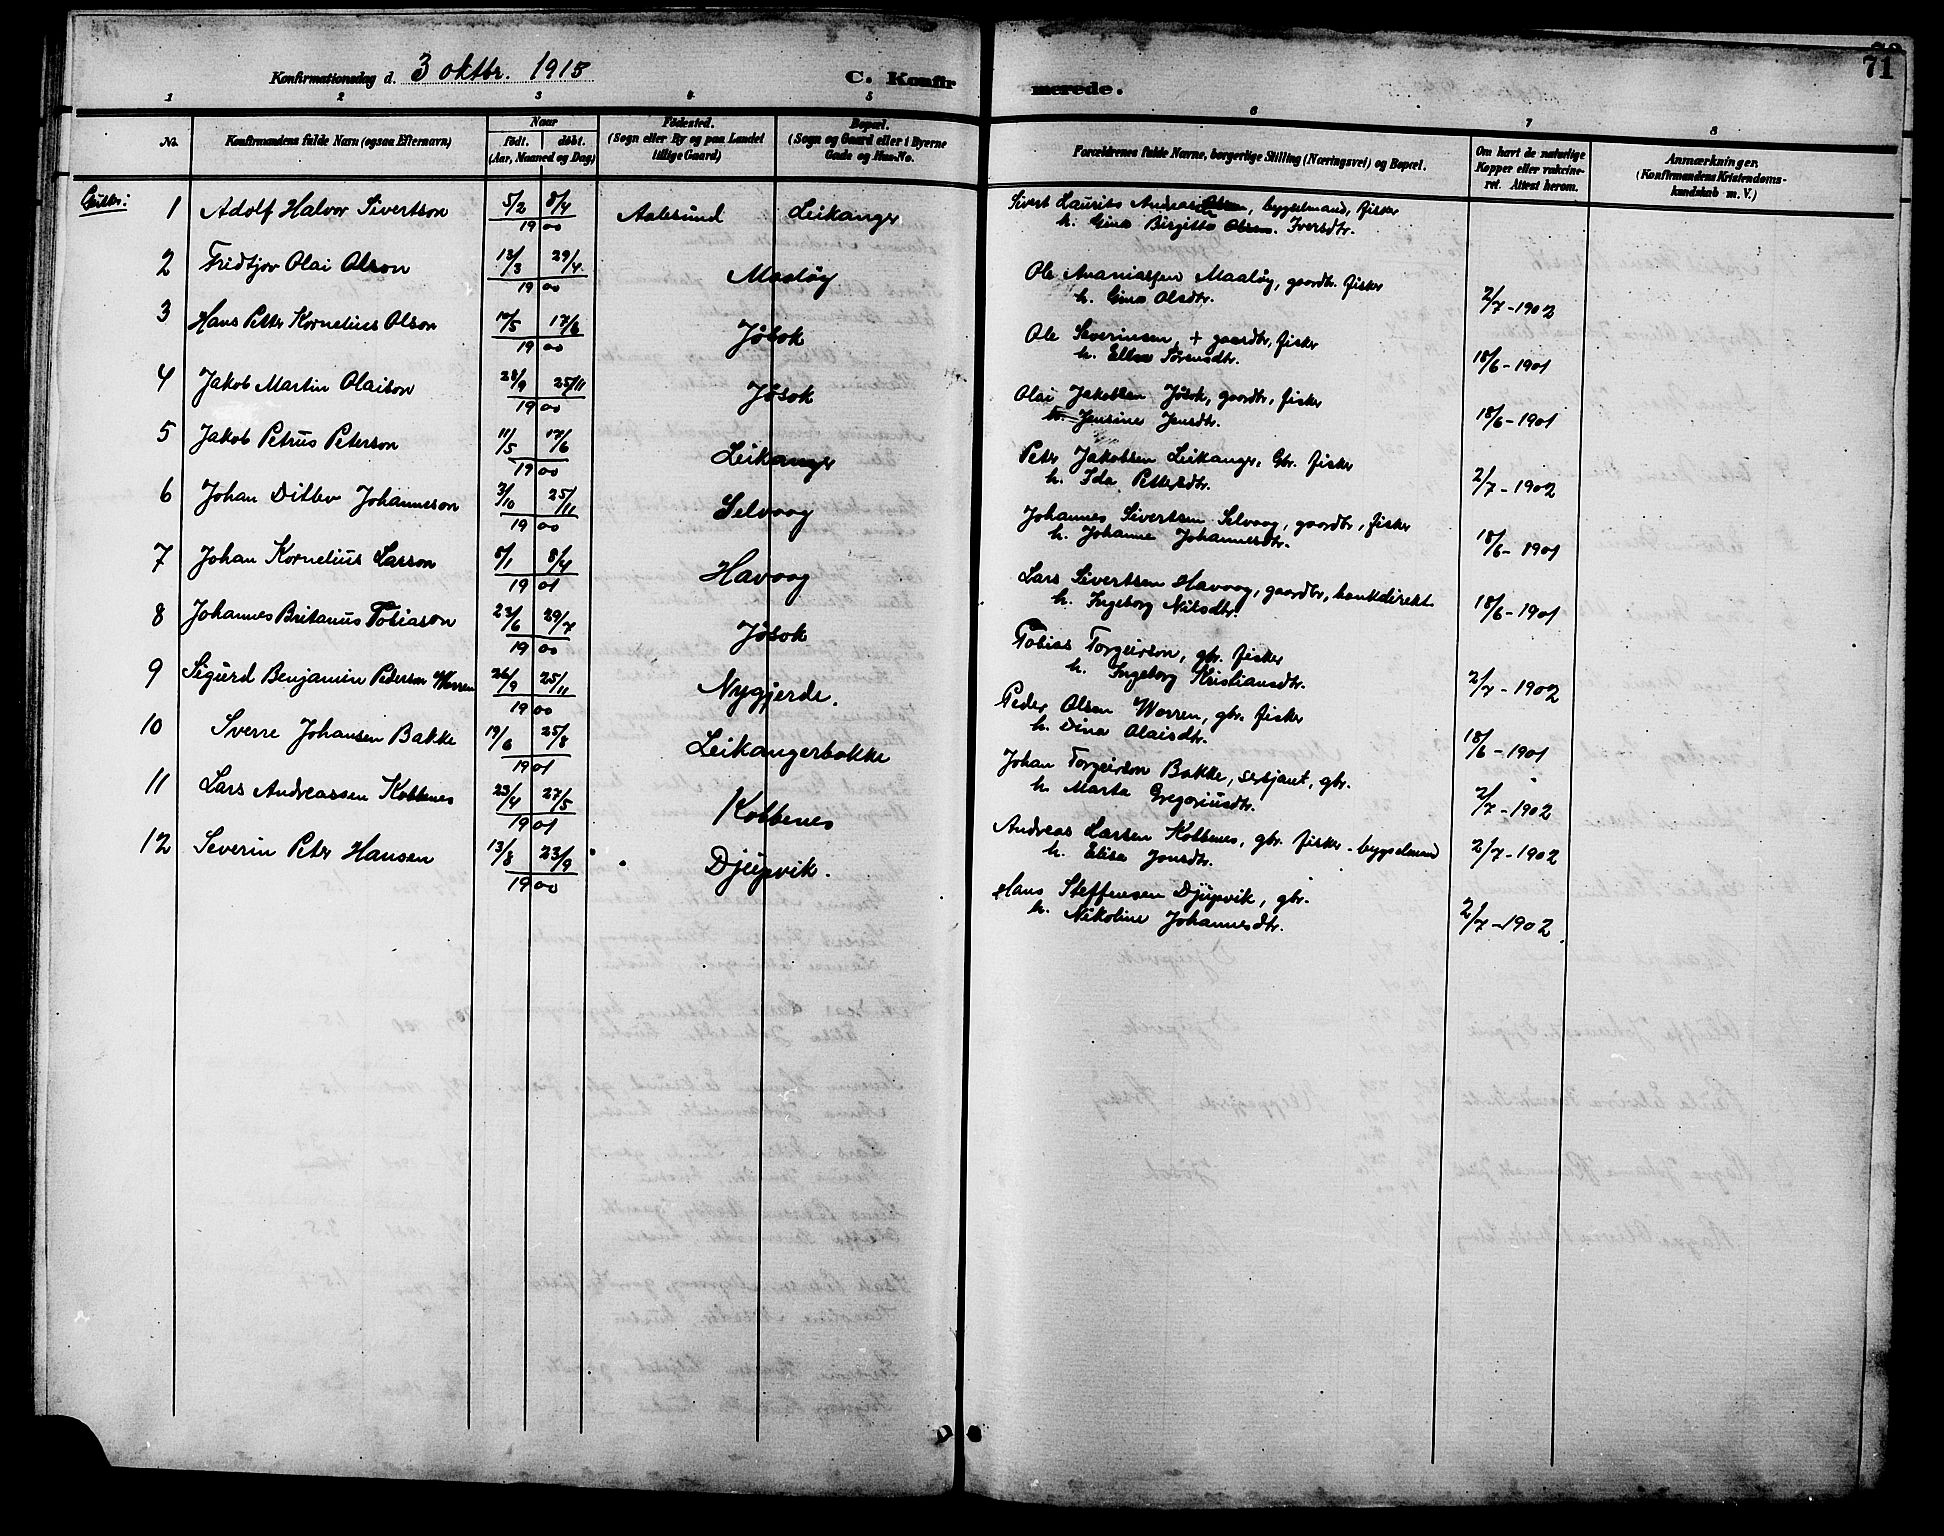 Konfirmationsdag d. 3 oktbr. 1915 C. Konfir merede. 71
1 2 3 4 5 6 7 8
No. Konfirmandens fulde Navn (ogsaa Efternavn) Naar født. døbt. (Aar, Maaned og Dag) Fødested. (Sogn eller By og paa Landet tillige Gaard) Bopæl. (Sogn og Gaard eller i Byerne Gade og Hus-No. Forældrenes fulde Navne, borgerlige Stilling (Næringsvei) og Bopæl. Om havt de naturlige Kopper eller vakcineret. Attest herom. Anmærkninger. (Konfirmandens Kristendomskundskab m. V.)
Gutter:
1 Adolf Halvor Sivertson 5/2 8/4 1900 Aalesund Leikanger Sivert Laurits Andreas, bygselmand, fisker
h. Gina Birgitte Olsen. Iversdtr.
2 Fridtjov Olai Olson 13/3 29/4 1900 Maaløy Ole Ananiassen Maaløy, gaardbr. fisker
h. Gina Olsdtr. 2/7-1902
3 Hans Peter Kornelius Olson 17/6 1900 Jøsok Ole Severinsen, + gaardbr, fisker
h. Elen Sørensdtr. 18/6-1901
4 Jakob Martin Olaison 28/9 25/11 1900 Jøsok Olai Jakobsen Jøsok, gaardbr, fisker
Jensine Jensdtr. 18/6-1901
5 Jakob Petrus Peterson 11/5 17/6 1900 Leikanger Peter Jakobsen Leikanger. Gbr. fisker
h. Ida Pettersdtr. 2/7-1902
6 Johan Ditlev Johanneson 3/10 25/11 1900 Selvaag Johannes Sivertsen Selvaag, gaardbr, fisker
h. Johanne Johannesdtr. 18/6-1901
7 Johan Kornelius Larson 8/4 1901 Havaag Lars Sivertsen Havaag, gaardbr, bankdirekt.
h. Ingeborg Nilsdtr. 18/6-1901
8 Johannes Britanus Tobiason 23/6 29/7 1900 Jøsok Tobias Torgeirson, gbr. fisker
h. Ingeborg Kristiansdtr. 2/7-1902
9 Sigurd Benjamin Pederson Worren 26/9 25/11 1900 Nygjerde. Peder Olsen Worren, gbr. fisker
h. Dina Olaisdtr. 18/6-1901
10 Sverre Johansen Bakke 19/6 25/8 1901 Leikangerbakke Johan Torgeirson Bakke, sersjant, gbr.
h. Marta Gregoriusdtr. 2/7-1902
11 Lars Andreassen Kobbenes 23/4 27/5 1901 Kobbenes Andreas Larsen Kobbenes, gbr. fisker - bygselmand
h. Elisa Jonsdtr. 2/7-1902
12 Severin Peter Hansen 13/8 23/9 1900 Djupvik. Hans Steffensen Djupvik, gbr.
h. Nikoline Johannesdtr. 2/7-1902